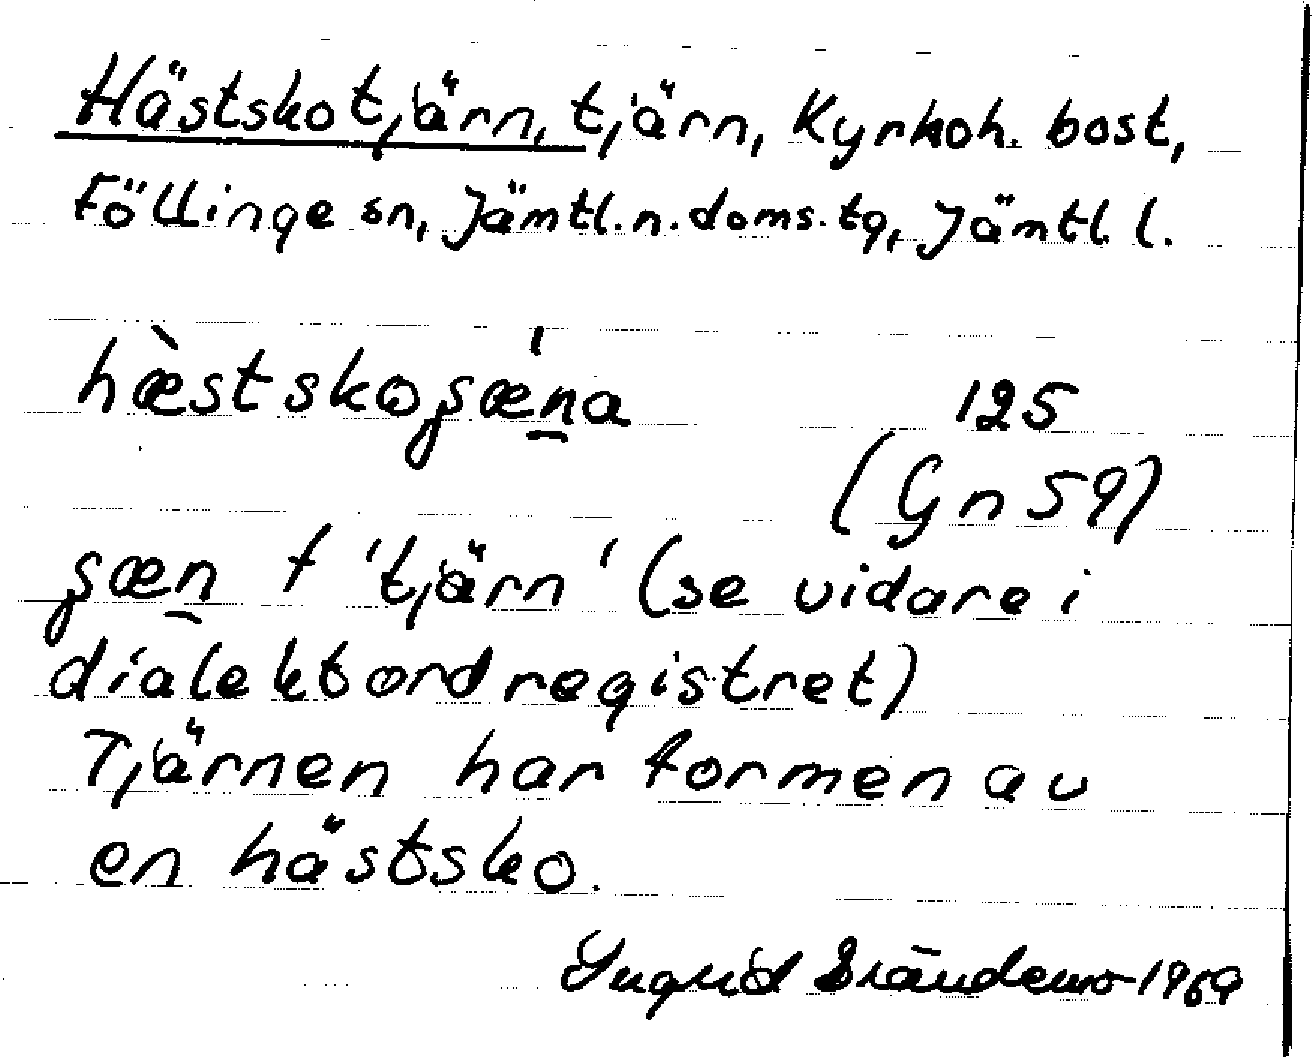 Hästskotjärn, tjärn, Kyrkoh. bost,
Föllinge sn, Jämtl. n. doms. tg, Jämtl. l.
hæ̀stskoʂæ´n̠a 125
(Gn 59)
ʂæn̠ f 'tjärn' (se vidare i
dialektordregistret)
Tjärnen har formen av
en hästsko.
Ingrid Brändemo 1969